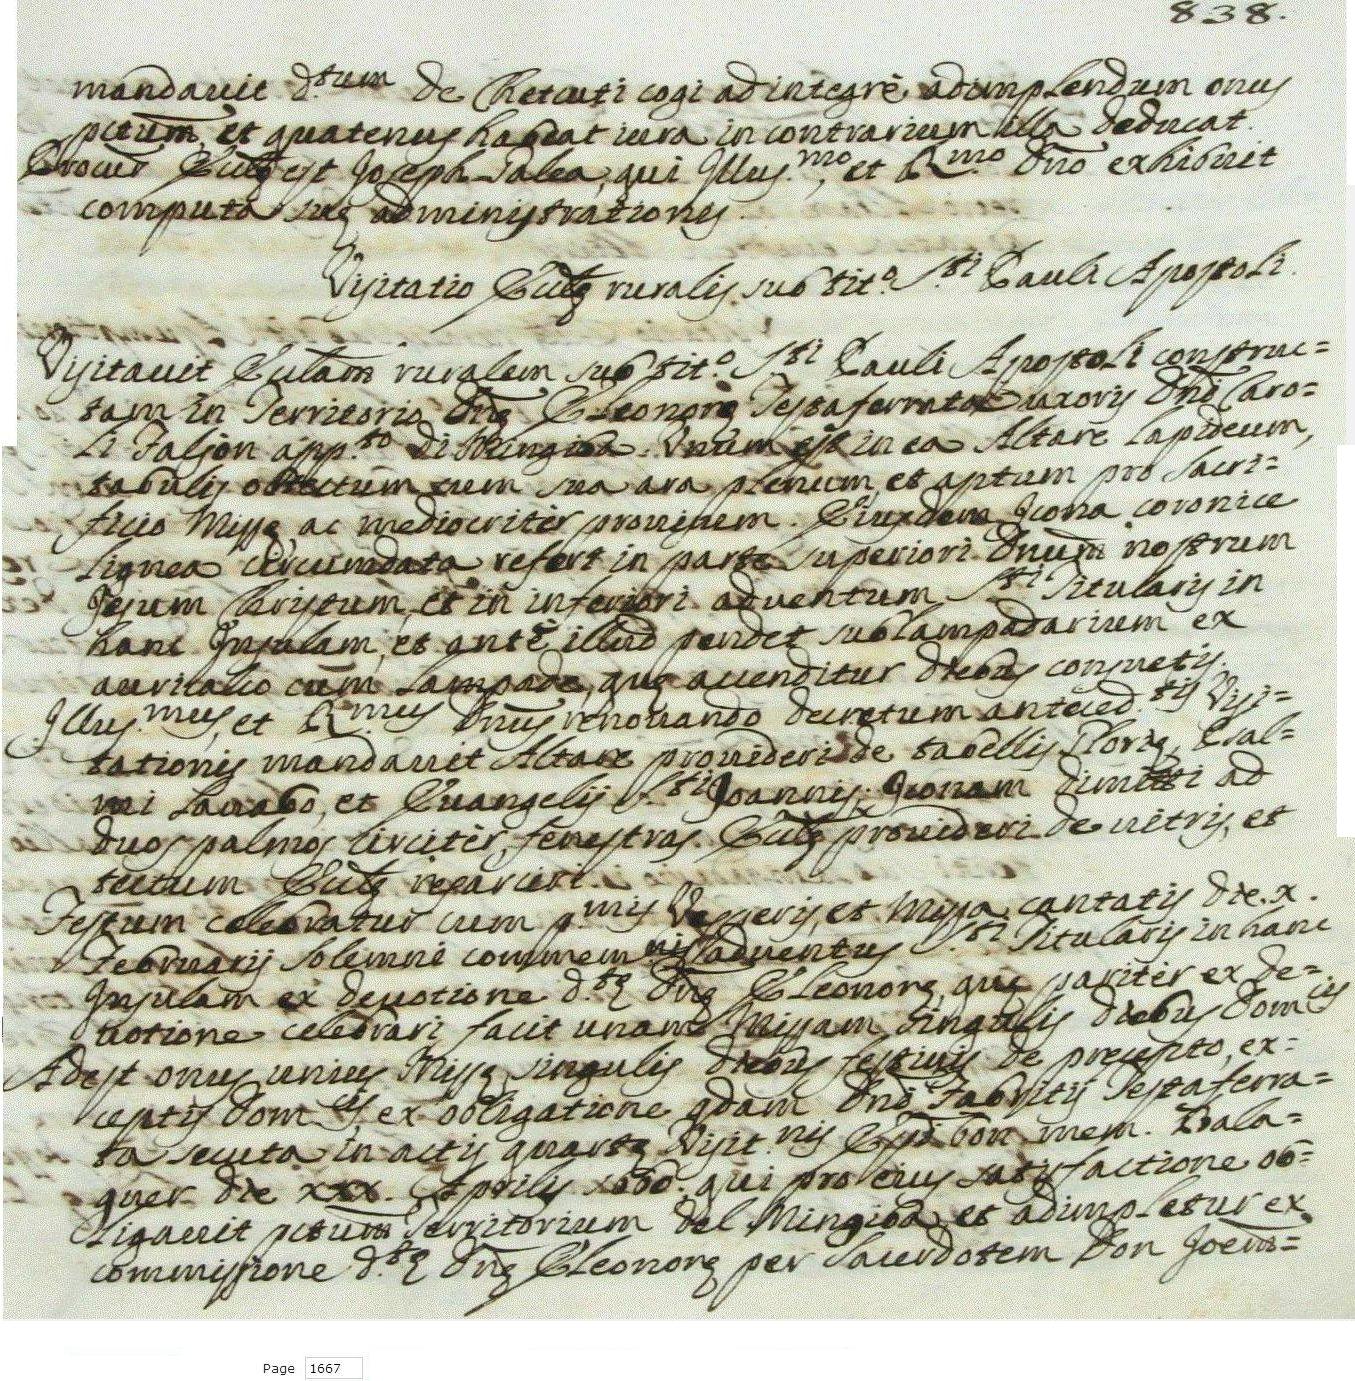 838.
mandavit d.tum de Chetcuti cogi ad integrè adimplendum onus
pctum, et quatenus habeat iura in contrarium illa deducat.
Procur Ecclæ est Joseph Palea, qui Illus.mo, et R.mo Dno exhibuit
computa suę administrationis.
Visitatio Ecclę ruralis sub tit.o S.ti Pauli Apostoli.
Visitavit Ecclam ruralem sub tit.o S.ti Pauli Apostoli construc=
tam in Territorio Dnę Eleonorę Testaferrata uxoris Dni Caro=
li Falson app.to di Mingiba. Unum est in ea Altare lapideum,
tabulis obtectum cum sua ara plenum, et aptum pro Sacri=
ficio Missę, ac mediocriter provisum. Eiusdem Icona coronice
lignea circumdata refert in parte superiori Dnum nostrum
Jesum Christum, et in inferiori adventum S.ti Titularis in
hanc Insulam, et ante illud pendet sublampadarium ex
auritalco cum lampade, quę accenditur diebus consuetis.
Illus.mus, et R.mus Dnus renovando decretum anteced.tis Visi=
tationis mandavit Altare provideri de tabellis Glorię, Psal=
mi Lavabo, et Evangelij S.ti Joannis; Iconam dimitti ad
duos palmos circitèr, fenestras Ecclę provideri de vitris, et
tectum Ecclę resarciri.
Festum celebratur cum p.mis Vesperis, et Missa cantatis die x.
Februarij Solemni commem.nis adventus S.ti Titularis in hanc
Insulam ex devotione d.tę Dnę Eleonorę, quę paritèr ex de=
votione celebrari facit unam Missam singulis diebus Dom.cis
Adest onus unius Missę singulis diebus festivis de precepto, ex=
ceptis Dom.cis, ex obligatione qdam Dni Fabritij Testaferra=
ta secuta in actis quartę Visit.nis Epi bon mem. Bala=
guer die xxx. Aprilis 1660. qui pro eius satisfactione ob=
ligavit pctum Territorium del Mingiba, et adimpletur ex
commissione d.tę Dnę Eleonorę per Sacerdotem Don Joem=
Page 1667